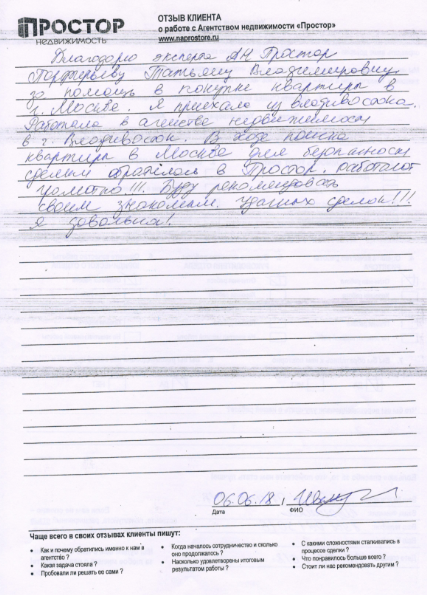 ПРОСТОР
НЕДВИЖИМОСТЬ
ОТЗЫВ КЛИЕНТА
о работе с Агентством недвижимости «Простор»
www.naprostore.ru
Благодарю эксперта АН Простор
Татьяну Владимировну
за помощь в покупки квартиры в
г. Москве. Я приехала из Владивостока.
Работала в агенстве недвижимости
в г. Владивосток. В ходе поиска
квартиры в Москве для безопасности
сделки обратилась в Простор. Работают
грамотно!!! Буду рекомендовать
своим знакомым. Удачных сделок!!!
Я довольна!
06.06.18,
Дата
ФИО
Чаще всего в своих отзывах клиенты пишут:
• Как и почему обратились именно к нам в агентство ?
• Какая задача стояла ?
• Пробовали ли решать ее сами ?
• Когда началось сотрудничество и сколько оно продолжалось ?
• Насколько удовлетворены итоговым результатом работы ?
• С какими сложностями сталкивались в процессе сделки ?
• Что понравилось больше всего ?
• Стоит ли нас рекомендовать другим ?